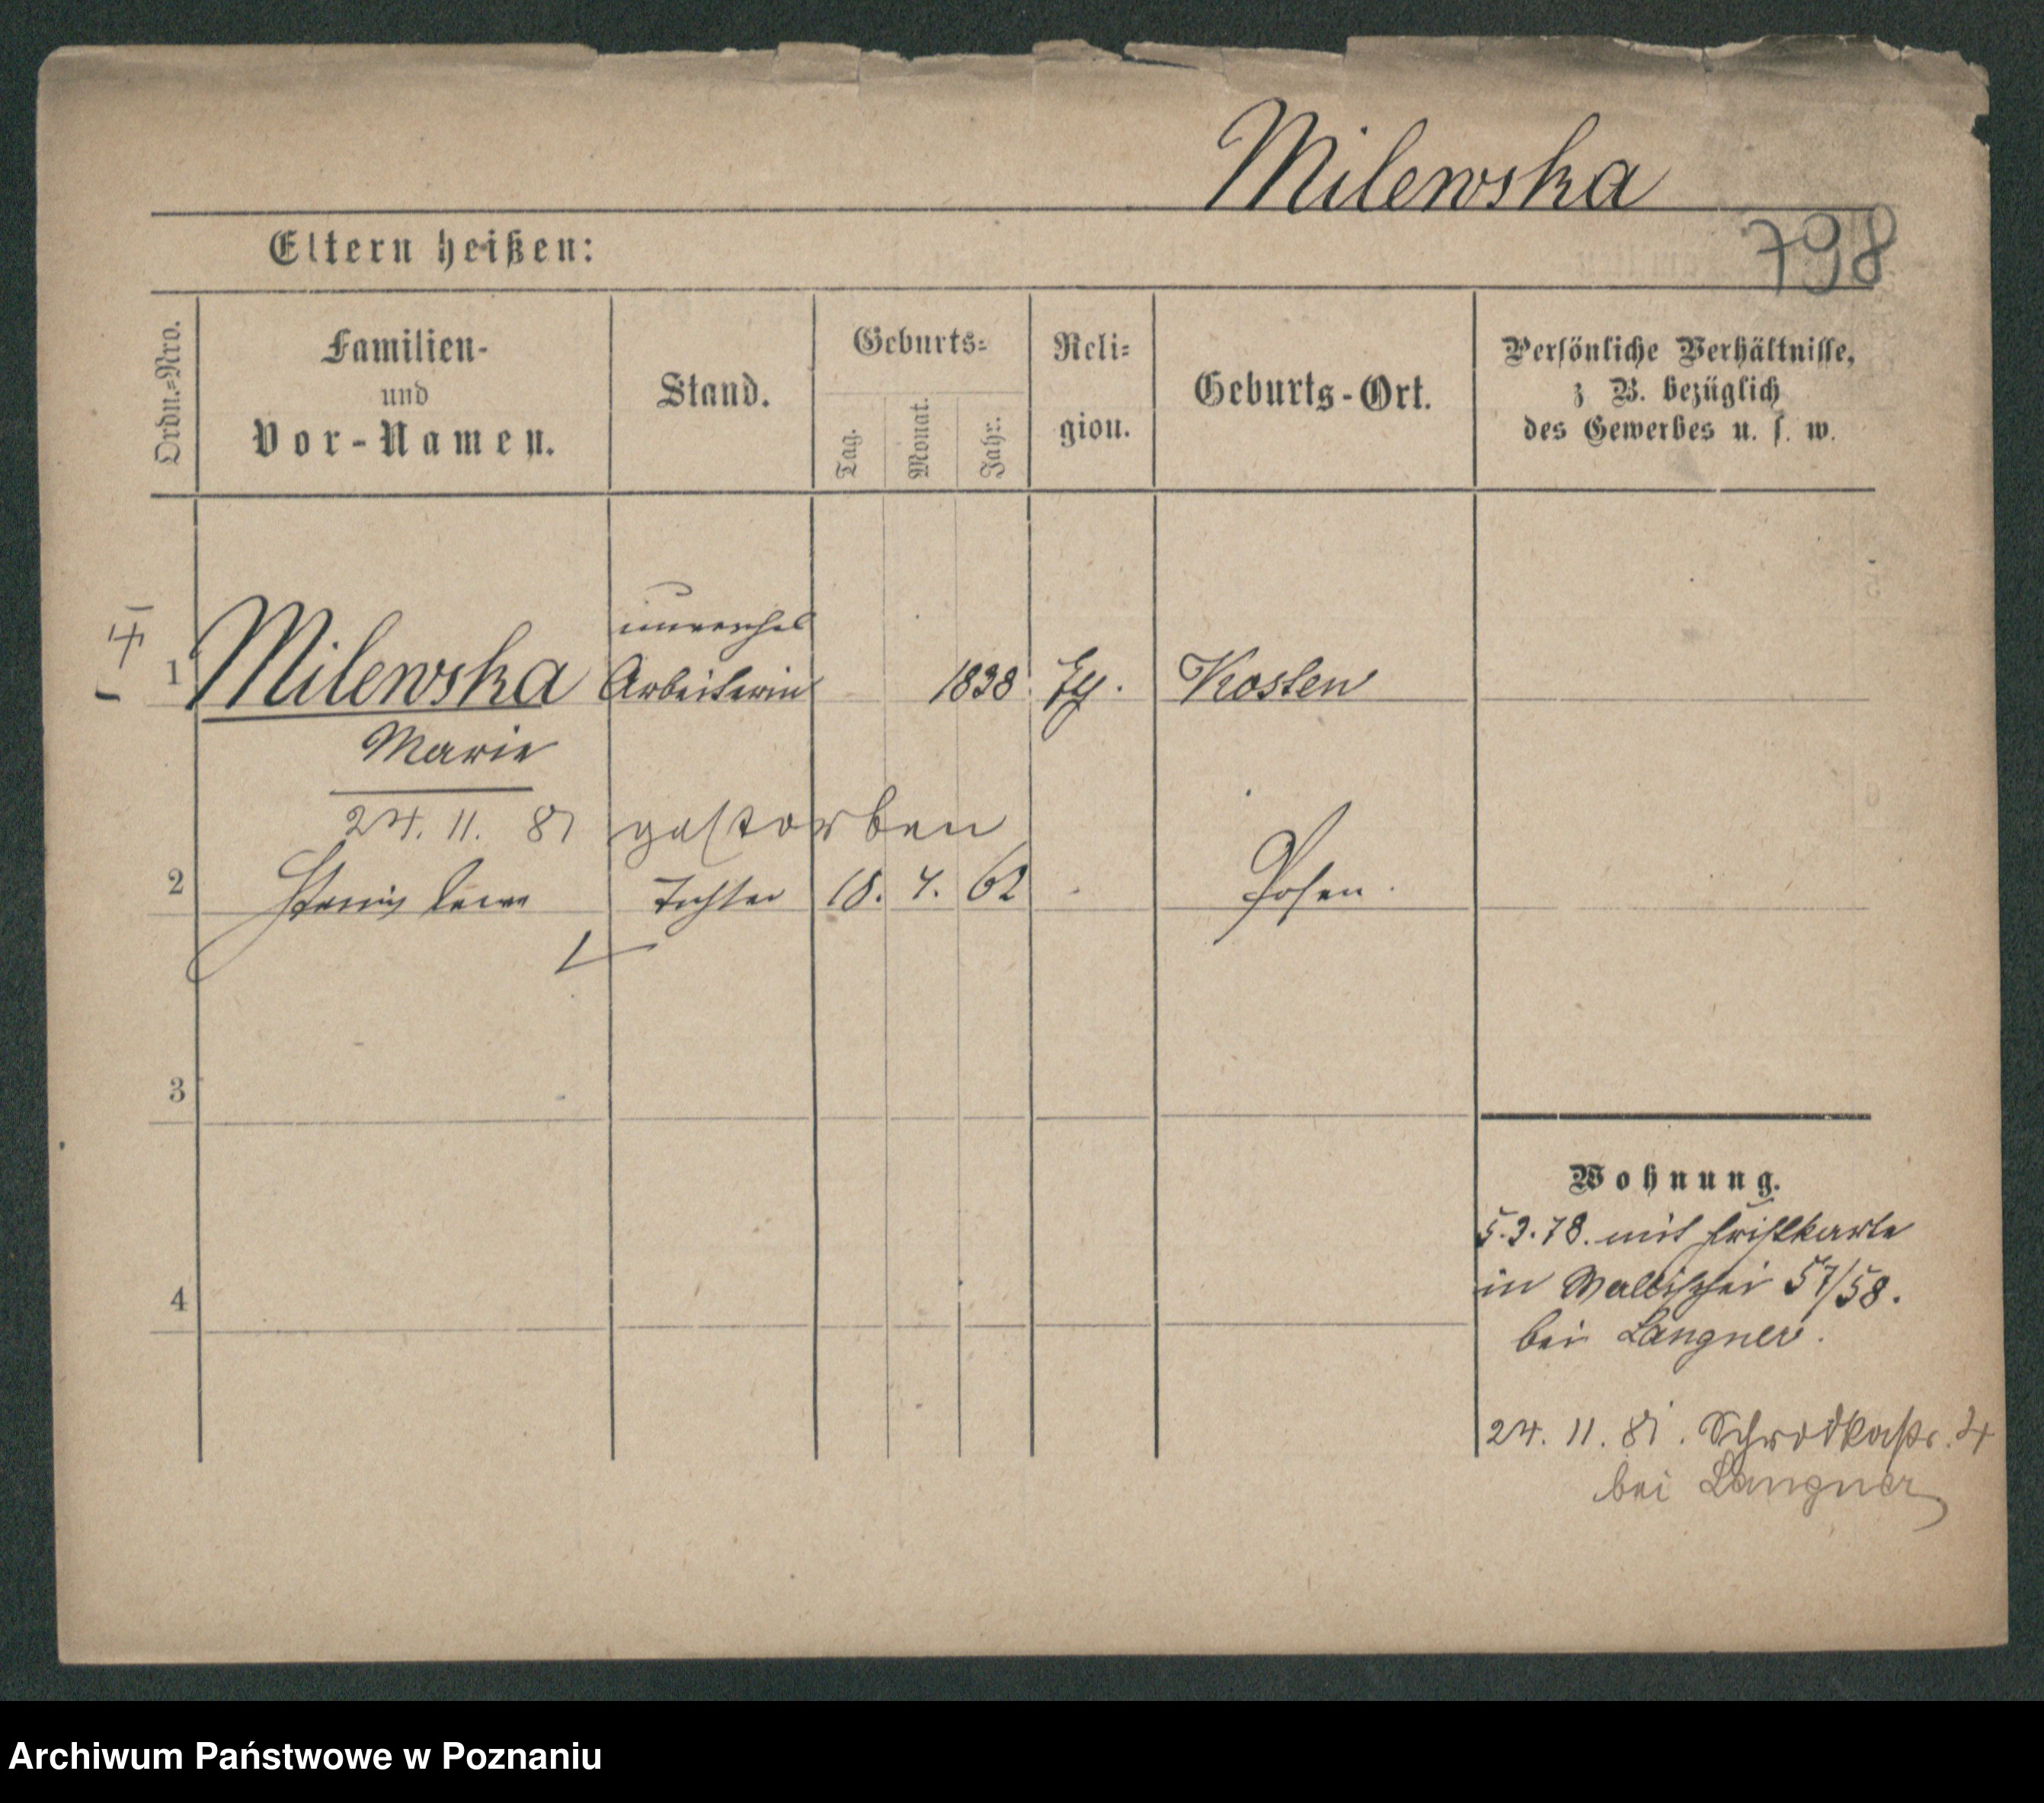 Milewska
798
Eltern heißen:
Ordn.-Nro.
Familien-
und
Vor-Namen.
Stand.
Geburts-
Tag.
Monat.
Jahr.
Reli-
gion.
Geburts-Ort.
Persönliche Verhältnisse,
z B. bezüglich
des Gewerbes u. s. w.
1 Milewska Arbeiterin 1838 Kosten
Marie
24. 11. 81 gestorben
2 Tochter 18. 4. 62 Posen.
3
4
Wohnung.
5.9.78. mit
in Wallischei 57/58.
bei Langner.
24. 11. 81. Schrodkastr. 4
bei Langner
Archiwum Państwowe w Poznaniu